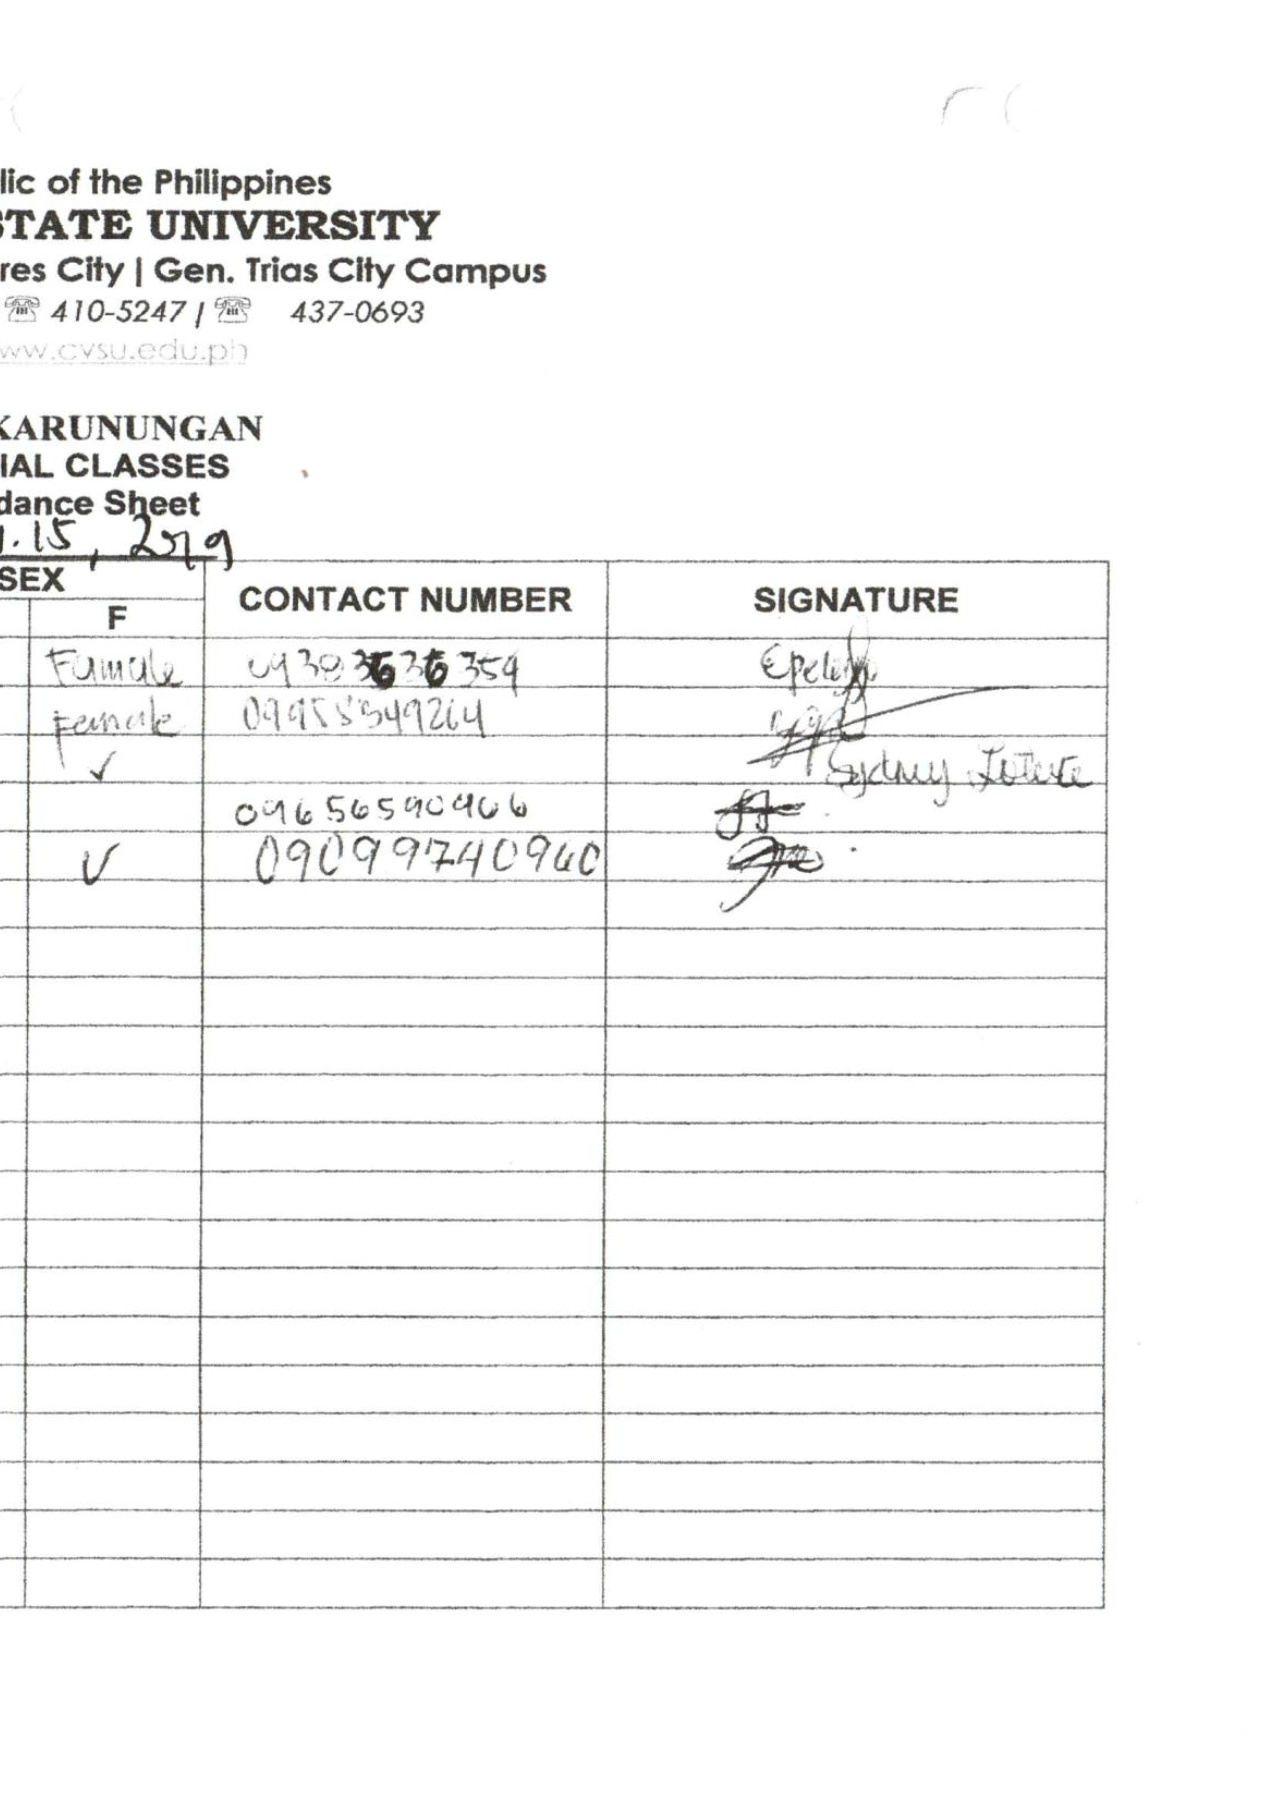 lic of the Philippines
STATE UNIVERSITY
res City | Gen. Trias City Campus
☏ 410-5247 / ☏ 437-0693
ww.cvsu.edu.ph
KARUNUNGAN
IAL CLASSES
dance Sheet
.15, 2019
SEX CONTACT NUMBER SIGNATURE
F
Famale
Female 09955349264
✓ Sydney
09656590906
✓ 09099740960